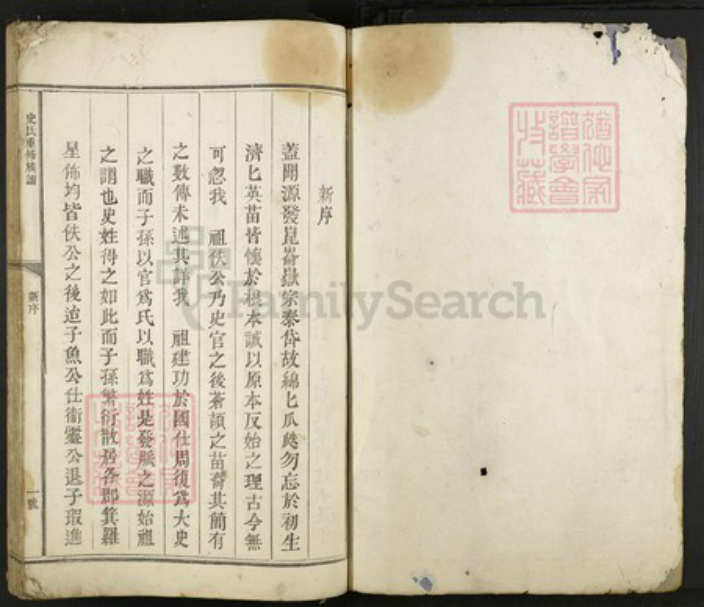 新序
蓋開源發崑崙嶽宗泰岱故綿匕瓜瓞勿忘於初生
濟匕英苗皆懷於根本誠以原本反始之理古今無
可忽我　祖佚公乃史官之後蒼頡之苗裔其簡有
之数傳未述其詳我　祖建功於國仕周復爲大史
之職而子孫以官爲氏以職爲姓是發脈之源始祖
之謂也史姓得之如此而子孫繁衍散居各郡箕羅
星佈均皆佚公之後迨子魚公仕衛靈公退子瑕進
史氏重修族譜
新序
一號
FamilySearch